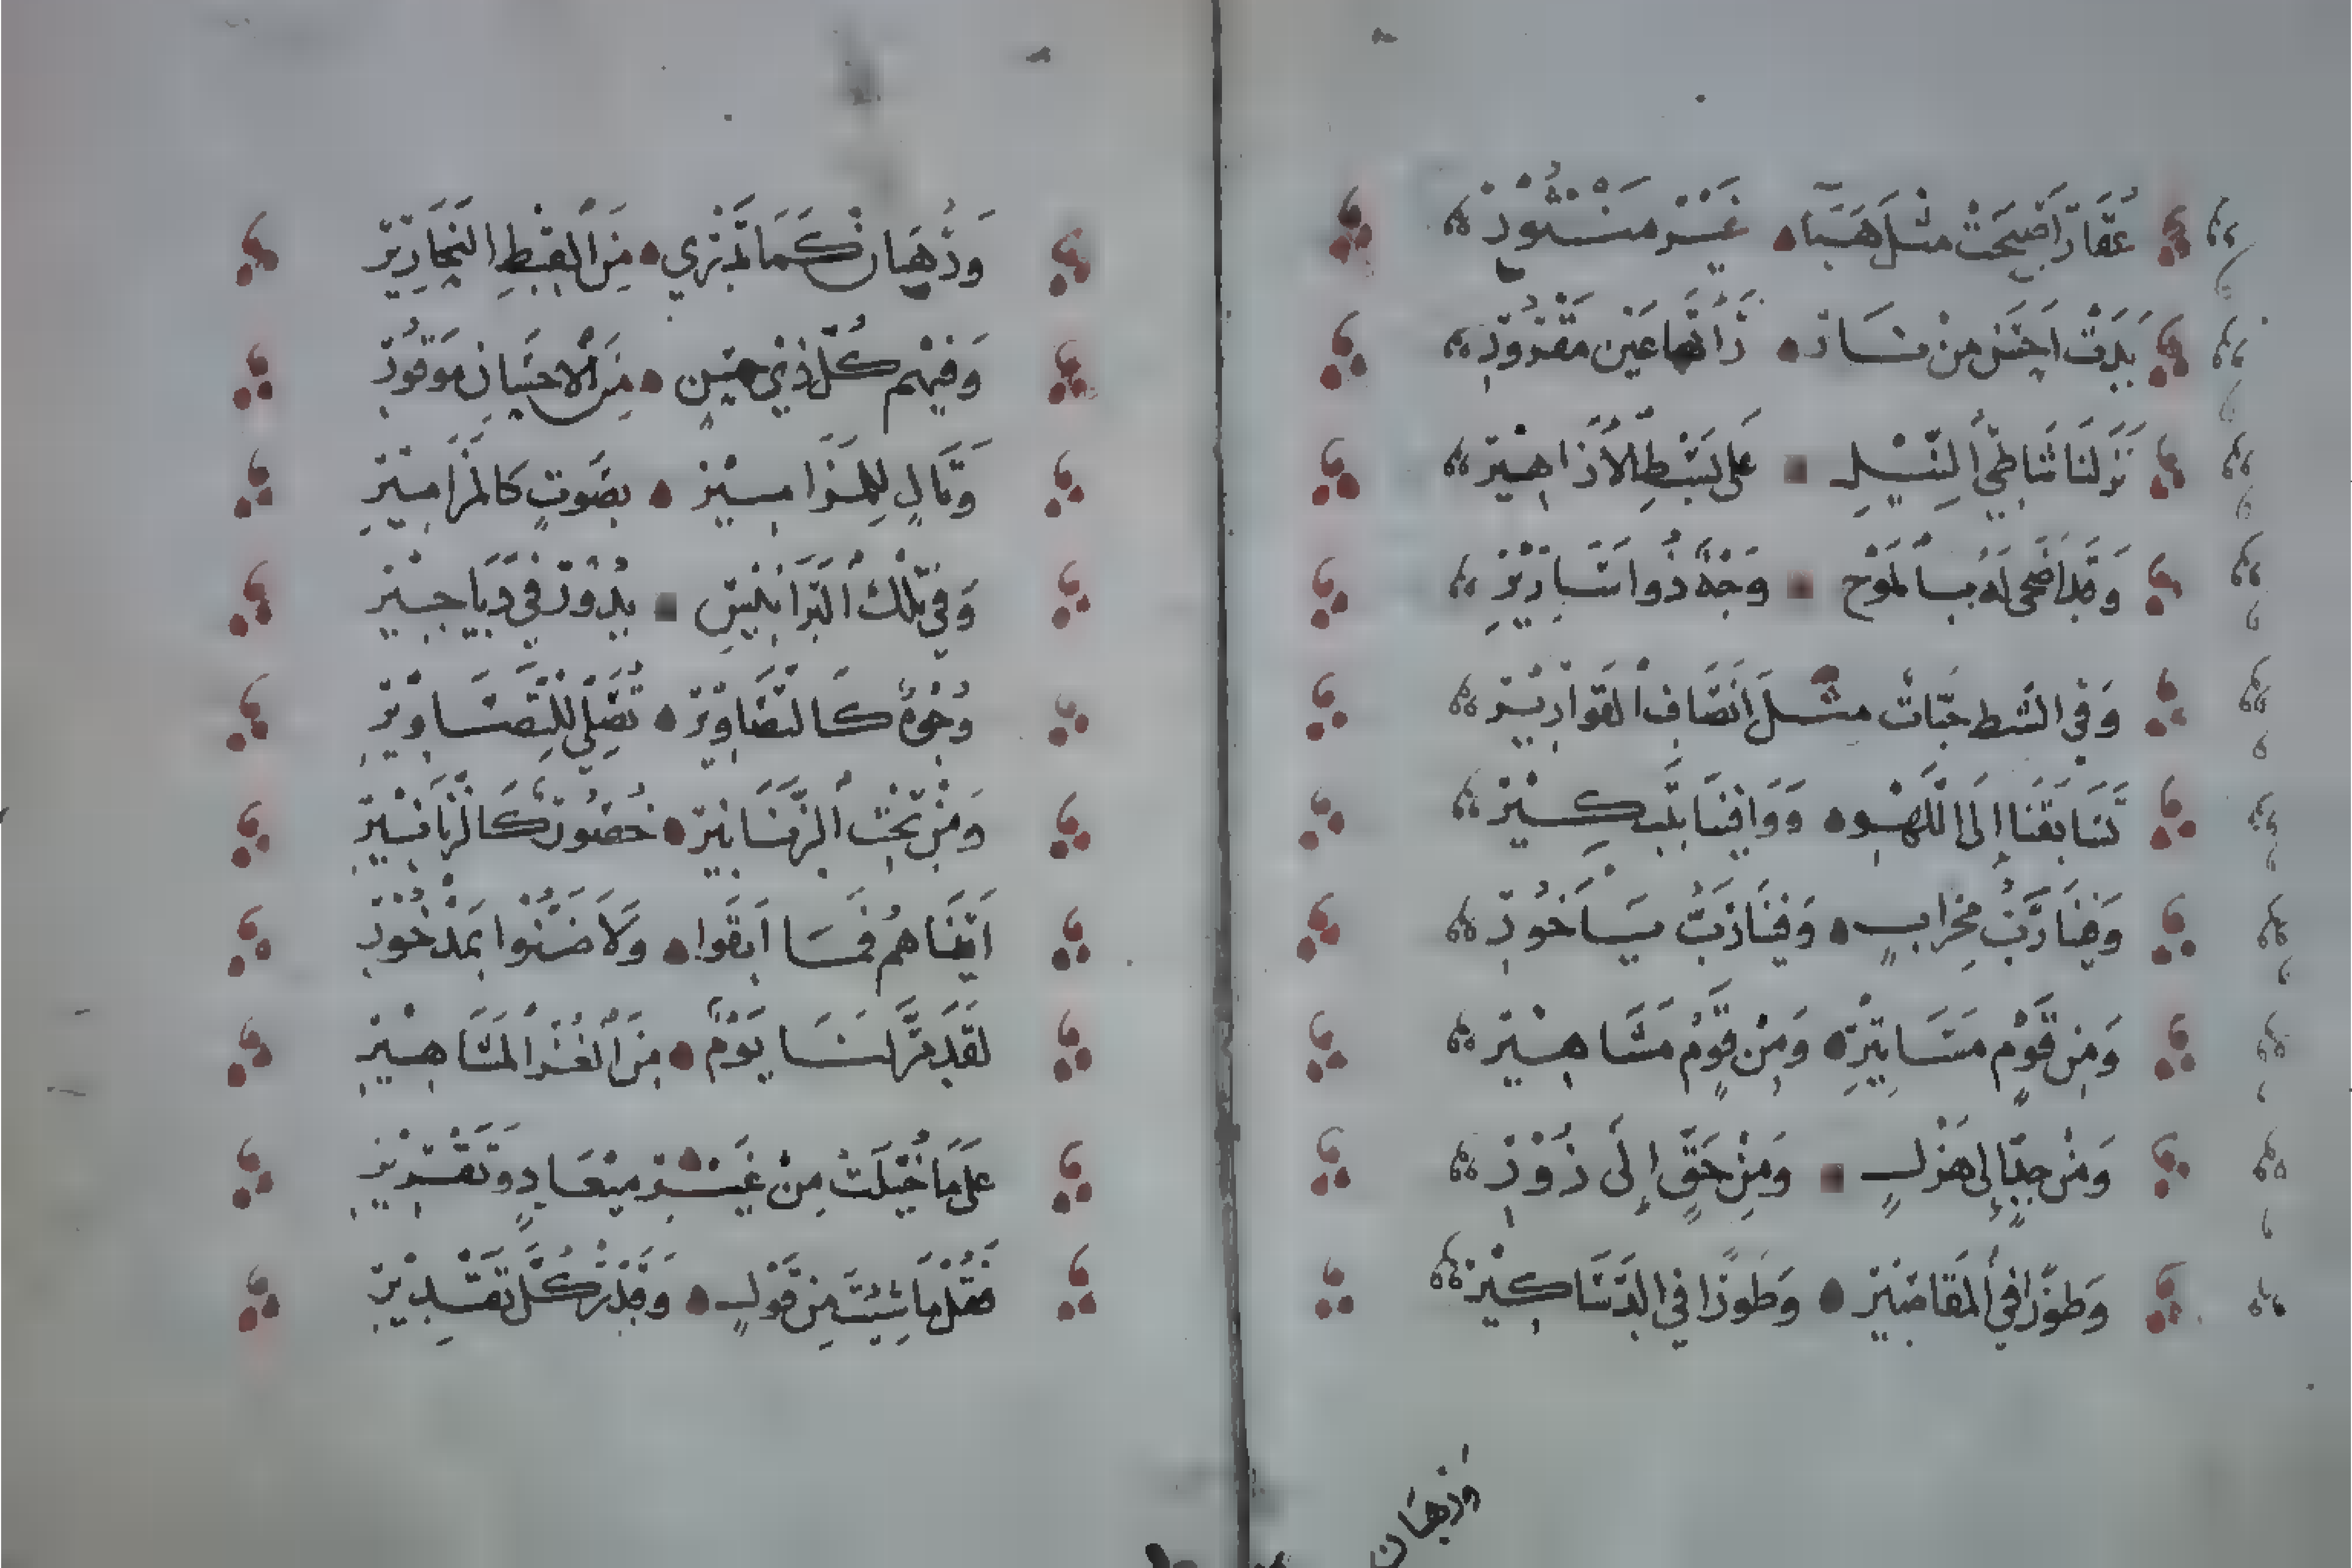 عُقَارٌ أَصْبَحَتْ مِثْلَ هَبَاءٍ غَيْرَ مَنْثُوْرِ
بَدَتْ اَحْسَنَ مِنْ نَارٍ رَأَتْهَا عَيْنُ مَقْرُوْرِ
نَزَلْنَا شَاطِئَ النِّيْلِ عَلَى بُسْطِ الأَزَاهِيْرِ
وَقَدْ اَضْحَى لَهُ بِالْمَوْجِ وَجْهٌ ذُو اَسَارِيْرِ
وَفِي الشَّطِّ حَبَابٌ مِثْلُ أَنْصَافِ الْقَوَارِيْرِ
تَسَابَقْنَا إِلَى اللَّهْوِ وَوَافَيْنَا بِتَبْكِيْرِ
وَفِيْنَا رَبُّ مِحْرَابٍ وَفِيْنَا رَبُّ مَاخُوْرِ
وَمِنْ قَوْمٍ مَسَاتِيْرِ وَمِنْ قَوْمٍ مَشَاهِيْرِ
وَمِنْ جِدٍّ إِلَى هَزْلٍ وَمِنْ حَقٍّ إِلَى زُوْرِ
وَطَوْرًا فِي الْمَقَاصِيْرِ وَطَوْرًا فِي الدَّسَاكِيْرِ
وَرُهْبَان
وَرُهْبَانٍ كَمَا تَدْرِي مِنَ الْقِبْطِ النَّحَارِيْرِ
وَفِيْهِمْ كُلُّ ذِيْ حُسْنٍ مِنَ الْاِحْسَانِ مَوْفُوْرِ
وَتَالٍ لِلْمَزَامِيْرِ بِصَوْتٍ كَالْمَزَامِيْرِ
وَفِي تِلْكَ الْبَرَانِيْسِ بُدُوْرٌ فِي دَيَاجِيْرِ
وُجُوْهٌ كَالتَّصَاوِيْرِ تُصَلِّي لِلتَّصَاوِيْرِ
وَمِنْ تَحْتِ الزَّنَانِيْرِ خُصُوْرٌ كَالزَّنَابِيْرِ
اَتَيْنَاهُمْ فَمَا اَبْقَوا وَلَا ضَنُّوا بِمَذْخُوْرِ
لَقَدْ مَرَّ لَنَا يَوْمٌ مِنَ الْغُرِّ الْمَشَاهِيْرِ
عَلَى مَا خُيِّلَتْ مِنْ غَيْرِ مِيْعَادٍ وَتَقْدِيْرِ
فَقُلْ مَا شِئْتَ مِنْ قَوْلٍ وَقَدِّرْ كُلَّ تَقْدِيْرِ